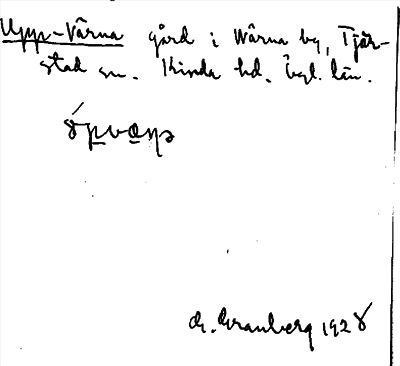 Upp-Värna gård i Wärna by, Tjär-
stad sn. Kinda hd. Ögl. län.
G. Granberg 1928